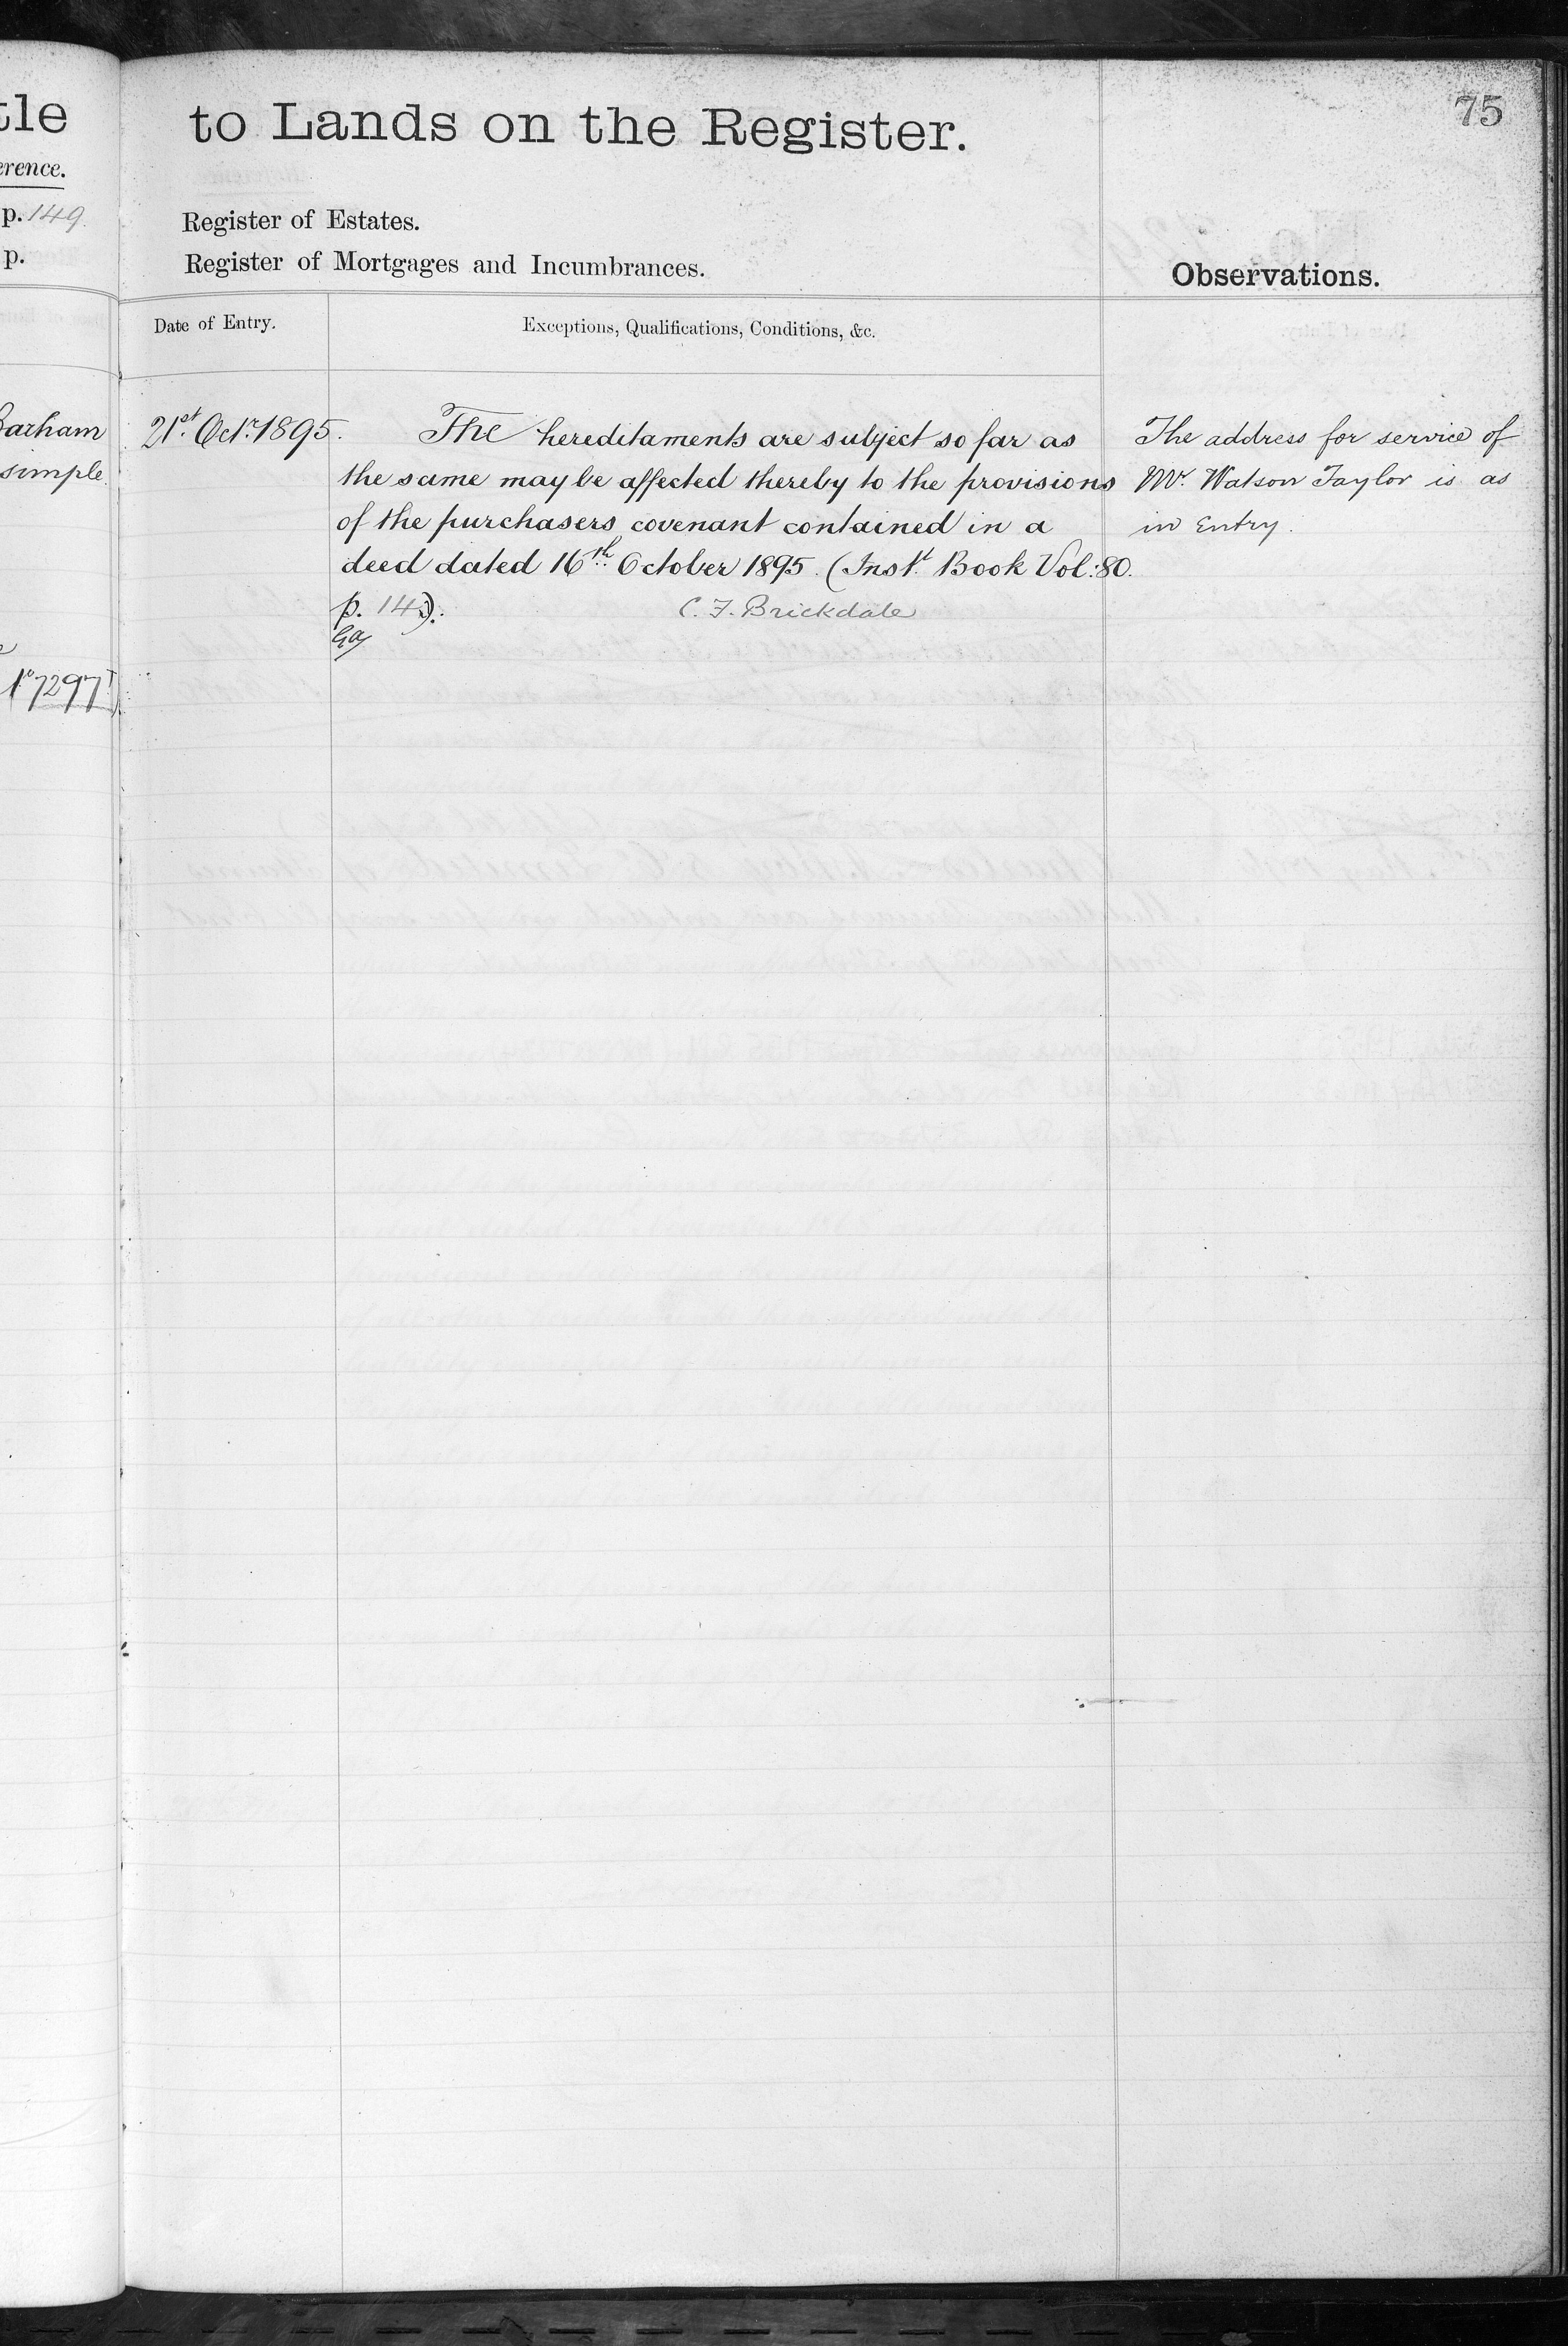 tle
erence.
p. 149.
p.
Barham
simple
7297
to Lands on the Register.
75
Register of Estates.
Register of Mortgages and Incumbrances.
Observations.
Date of Entry.
Exceptions, Qualifications, Conditions, &c.
21st. Octr. 1895.
The hereditaments are subject so far as
the same may be affected thereby to the provisions
of the purchasers covenant contained in a
deed dated 16th October 1895. (Inst. Book Vol: 80.
p.
C. F. Brickdale
The address for service of
Mr. Watson Taylor is as
in Entry.